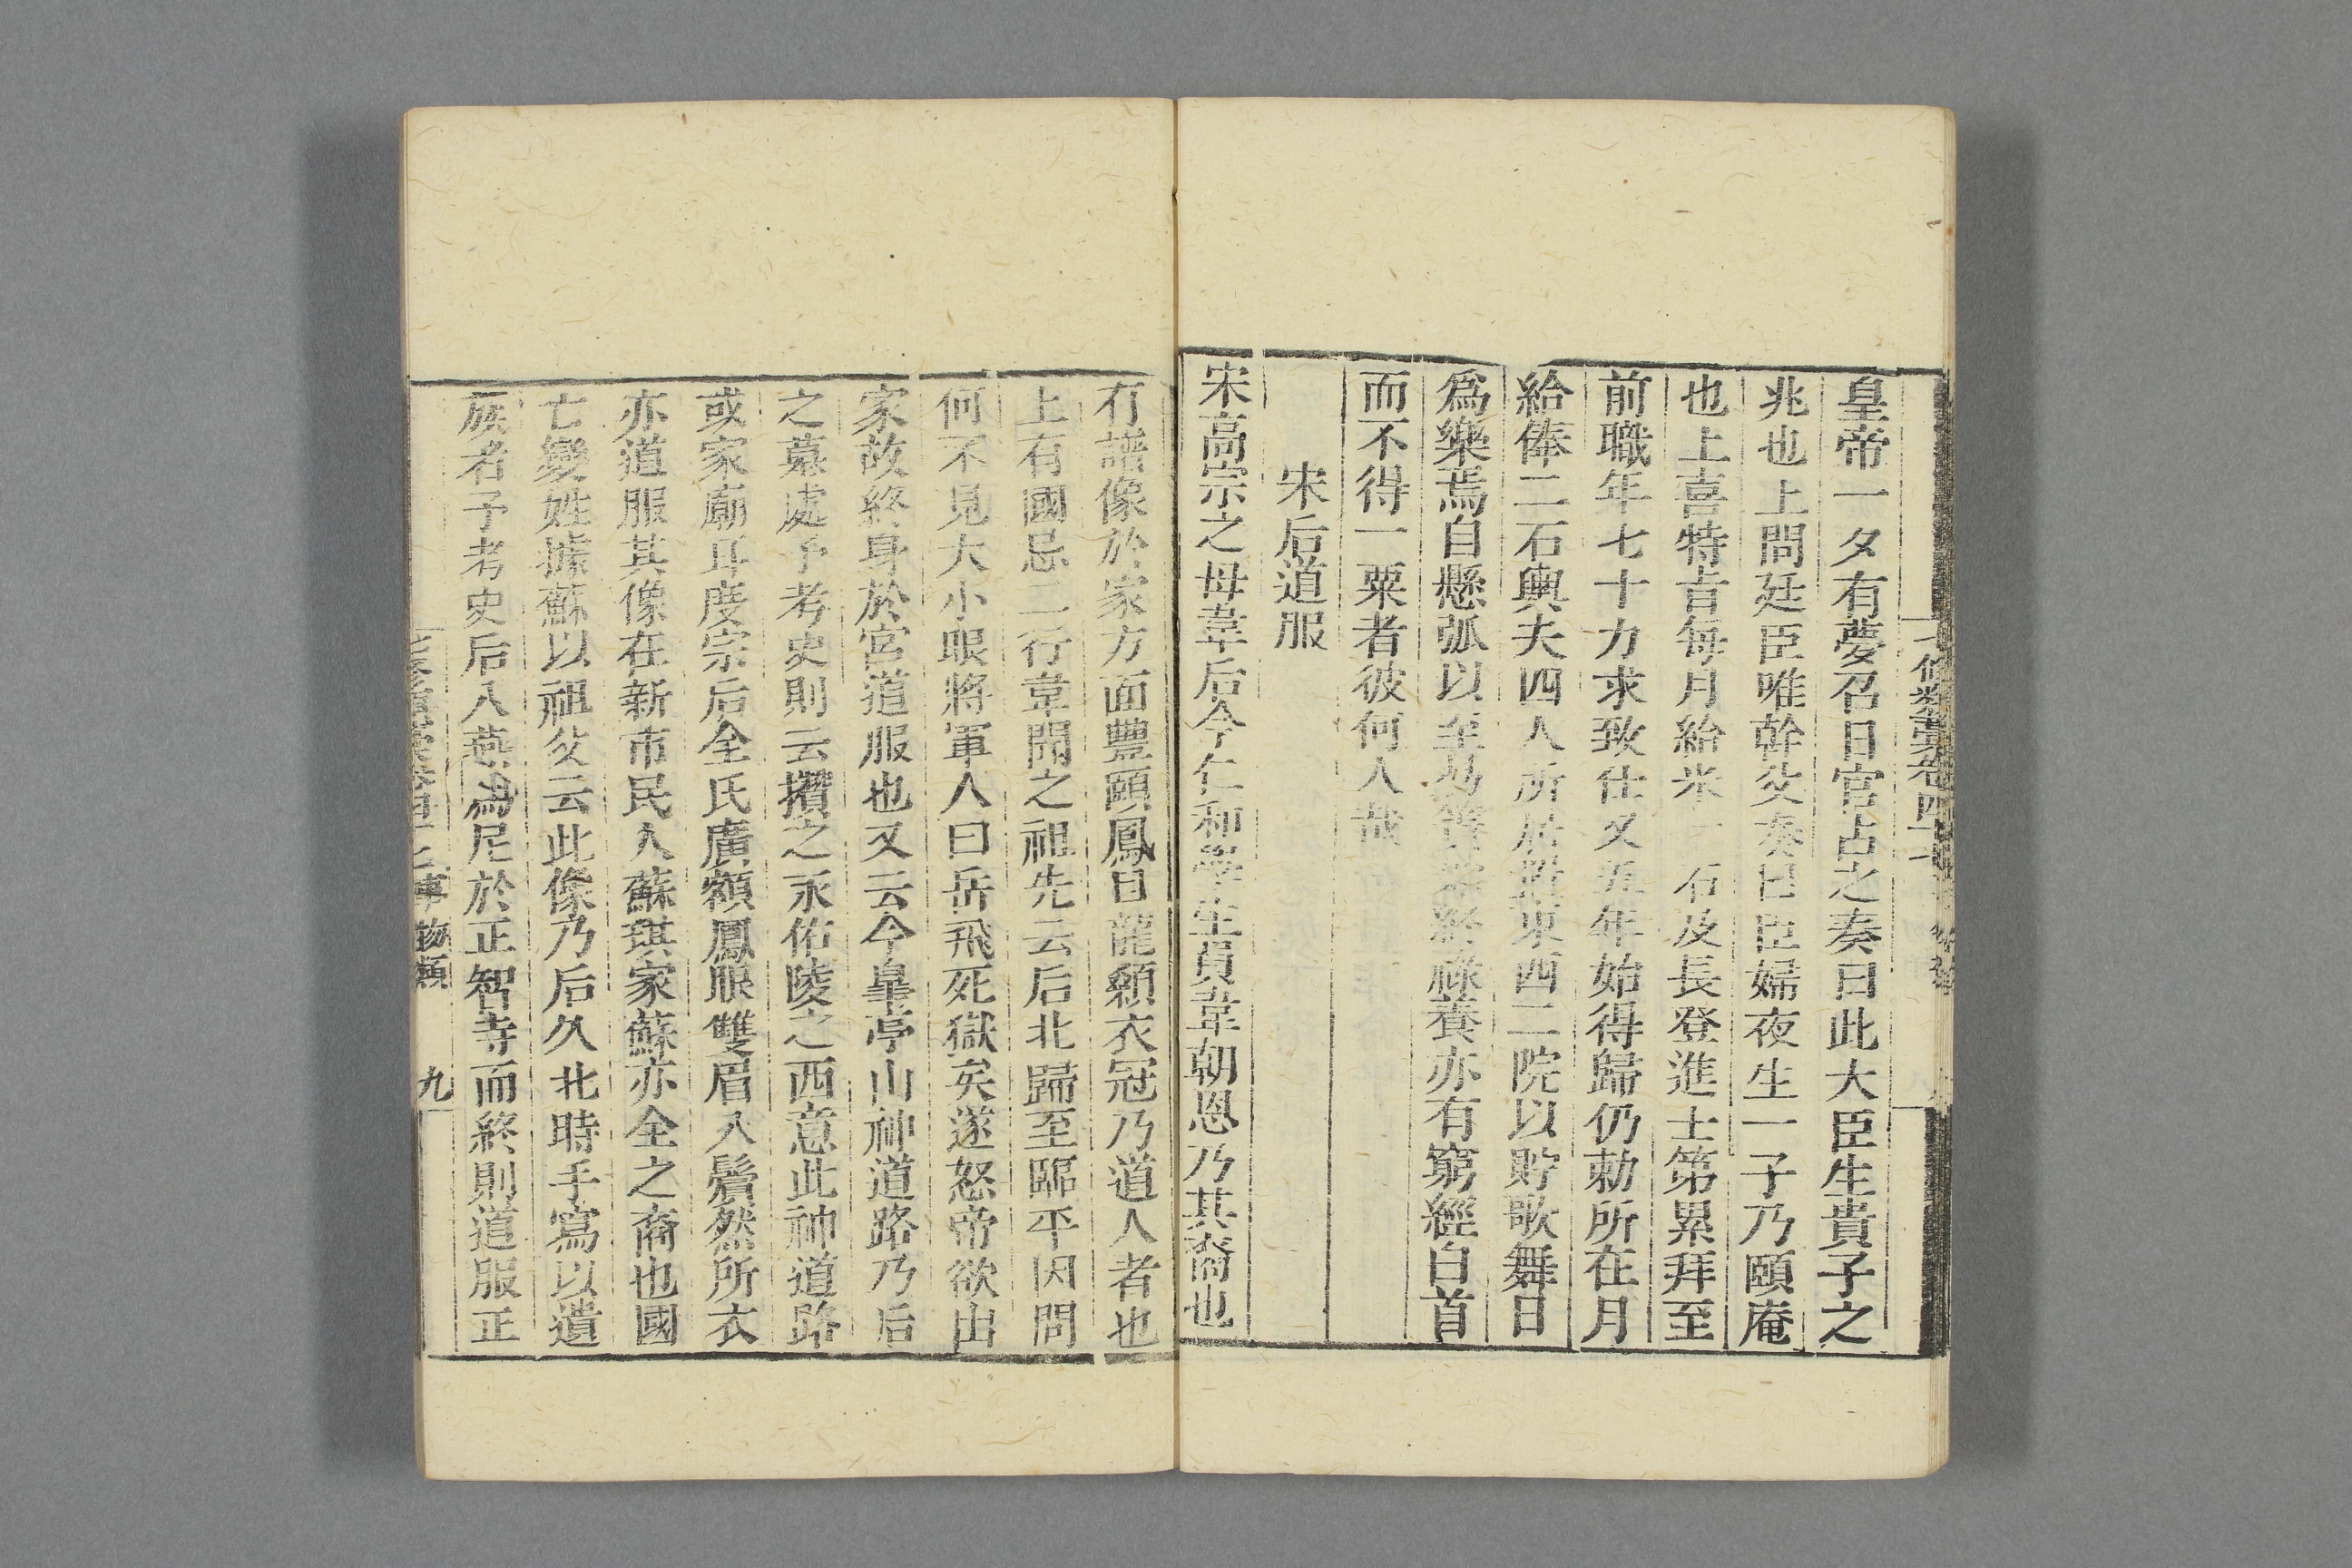 皇帝一夕有夢召日官占之奏曰此大臣生貴子之
兆也上問廷臣唯幹父奏曰臣婦夜生一子乃頤庵
也上喜特旨每月給米一石及長登進士第累拜至
前職年七十力求致仕又五年始得歸仍勅所在月
給俸二石輿夫四人所居蓋東西二院以貯歌舞日
爲樂焉自懸弧以至易簀終祿養亦有窮經白首
而不得一粟者彼何人哉
宋后道服
宋高宗之母韋后今仁和學生員韋朝恩乃其裔也
有譜像於家方面豐頤鳳目龍額衣冠乃道人者也
上有國忌二行韋聞之祖先云后北歸至臨平因問
何不見大小眼將軍人曰岳飛死獄矣遂怒帝欲出
家故終身於宮道服也又云今皐亭山神道路乃后
之墓處予考史則云攢之永佑陵之西意此神道路
或家廟耳度宗后全氏廣額鳳眼雙眉入鬢然所衣
亦道服其像在新市民人蘇琪家蘇亦全之裔也國
亡變姓據蘇以祖父云此像乃后久北時手寫以遺
族者予考史后入燕爲尼於正智寺而終則道服正
事物類
九